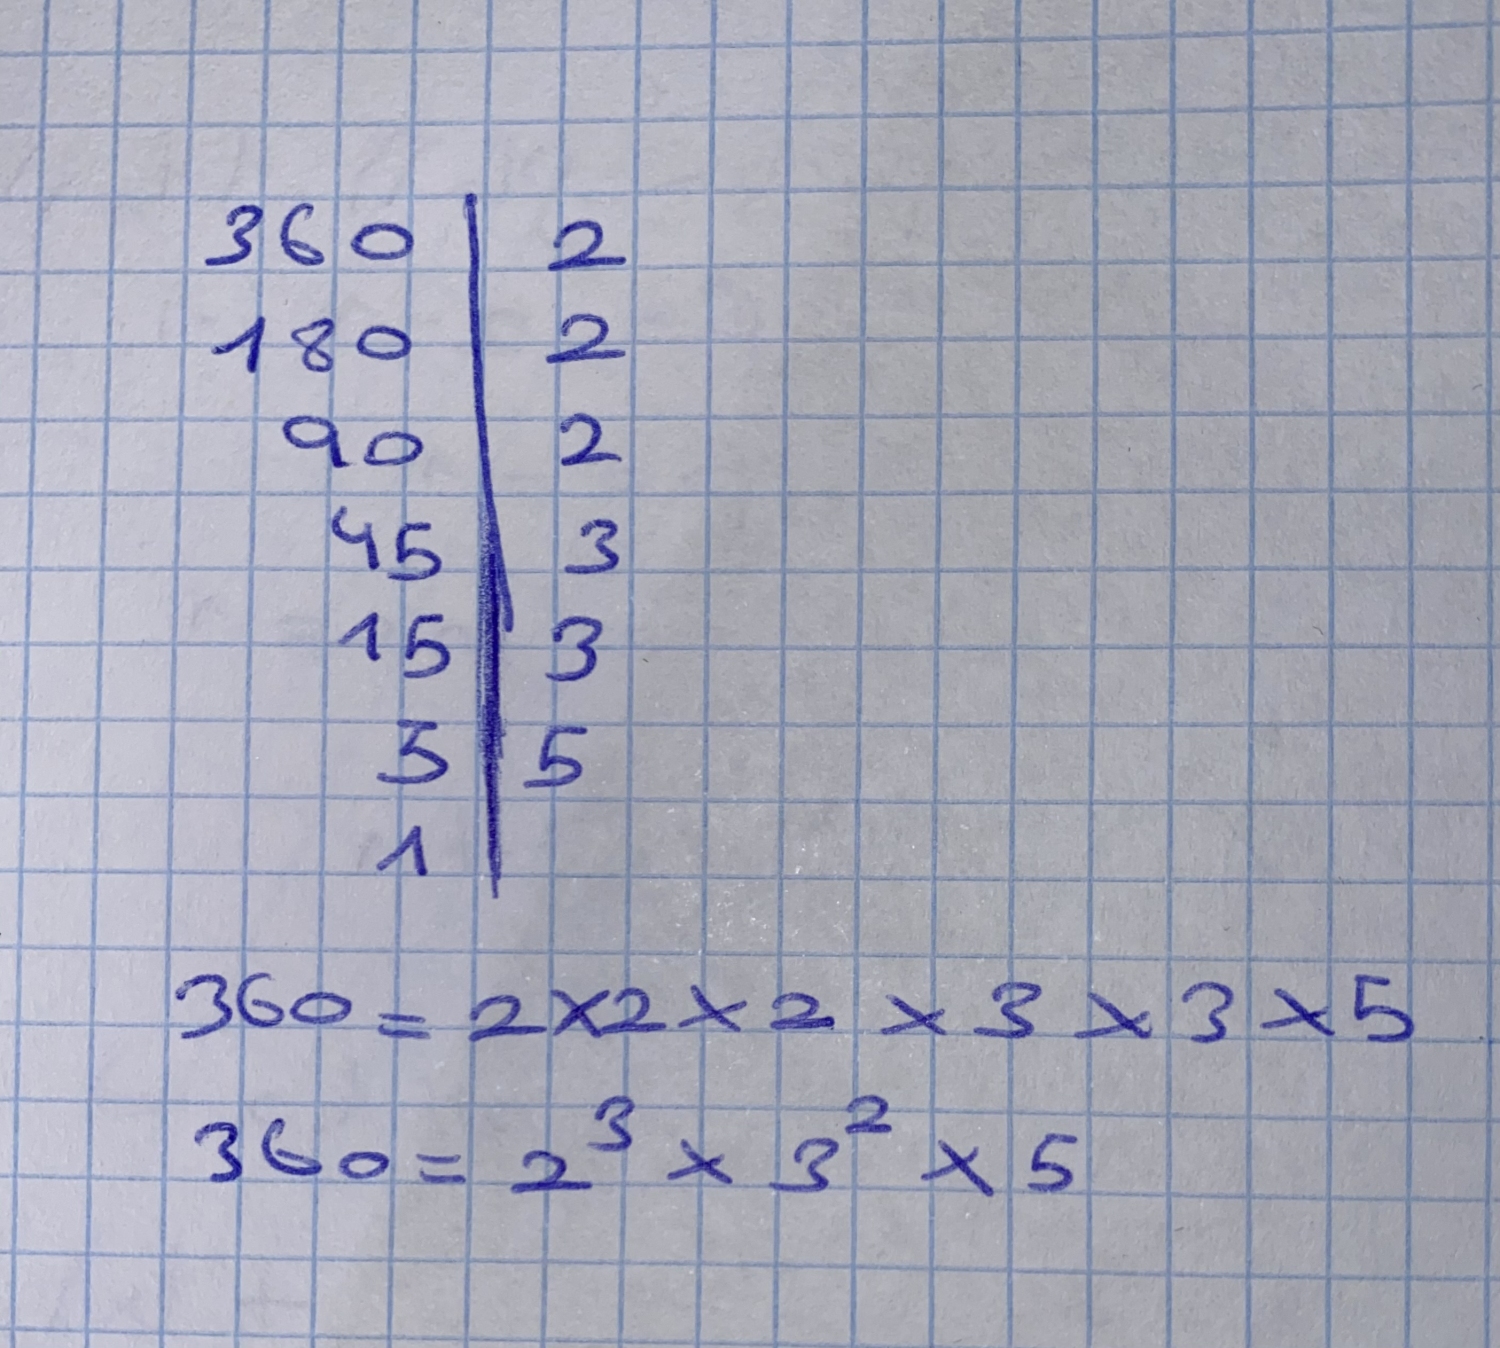 360 | 2
180 | 2
90 | 2
45 | 3
15 | 3
5 | 5
1 |
360 = 2 × 2 × 2 × 3 × 3 × 5
360 = 2³ × 3² × 5